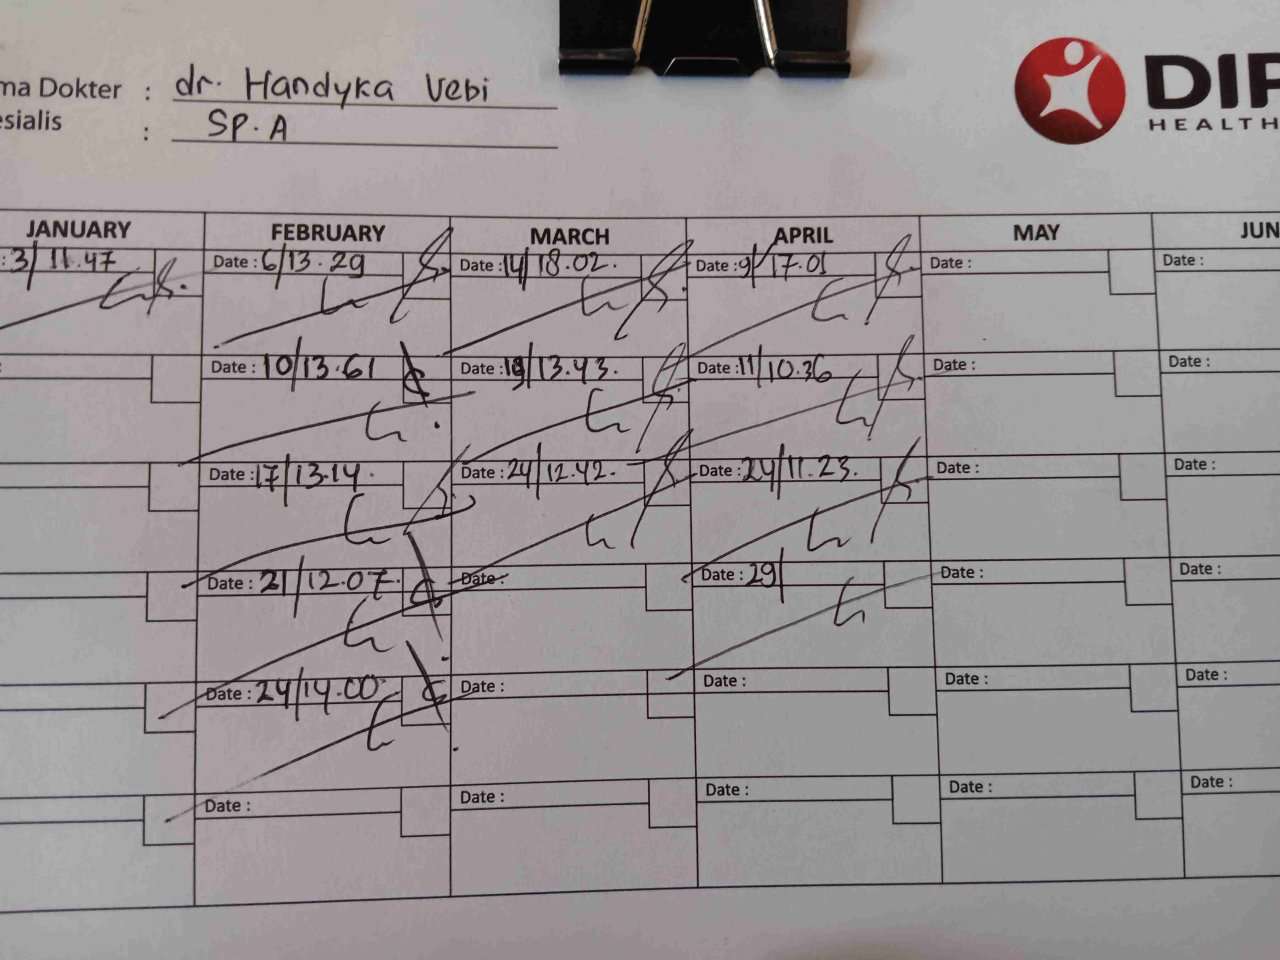 ma Dokter : dr. Handyka Vebi
esialis : SP. A
DIP
HEALTH
JANUARY FEBRUARY MARCH APRIL MAY JUN
: 3/ 11.47 Date : 6/13.29 Date : 14/18.02. Date : 9/17.01 Date : Date :
: Date : 10/13.61 Date : 13.43. Date : 11/10.36 Date : Date :
Date : 17/13.14. Date : 24/12.42. Date : 24/11.23. Date : Date :
Date : 21/12.07. Date : Date : 29/ Date : Date :
Date : 24/14.00 Date : Date : Date : Date :
Date : Date : Date : Date : Date :